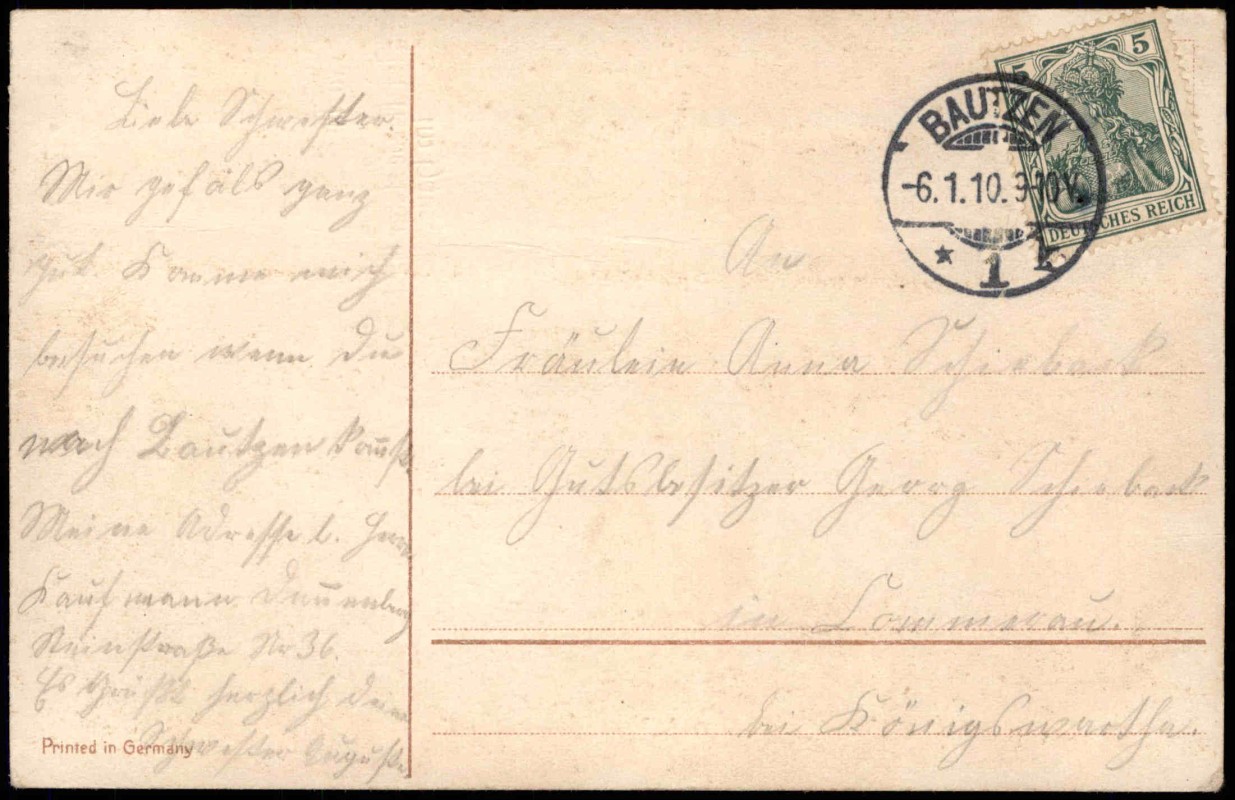 Liebe Schwester.
Mir gefäls ganz
gut. Komme mich
besuchen wenn Du
nach Bautzen komst
Meine Adresse b. Herrn
Kaufmann
Steinstraße Nr 36.
Es Grüßt herzlich deine
Schwester Auguste
Printed in Germany
5 5
DEUTSCHES REICH
BAUTZEN
-6.1.10. 9-10V.
* 1 k
An
Fräulein Anna Schieback
bei Gutsbesitzer Georg Schieback
in Commerau.
bei Königswartha.